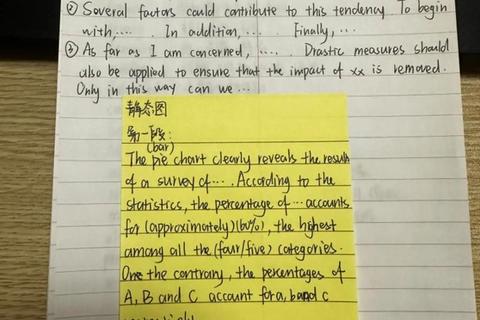 ② Several factors could contribute to this tendency. To begin
with,.... . In addition, ... . Finally, ...
③ As far as I am concerned, ..... . Drastic measures should
also be applied to ensure that the impact of xx is removed.
Only in this way can we ...
静态图
第一段:
(bar)
The pie chart clearly reveals the result
of a survey of.... According to the
statistics, the percentage of ... accounts
for (approximately)(60%), the highest
among all the (four/five) categories.
One the contrary, the percentages of
A, B and C account for a, b and c